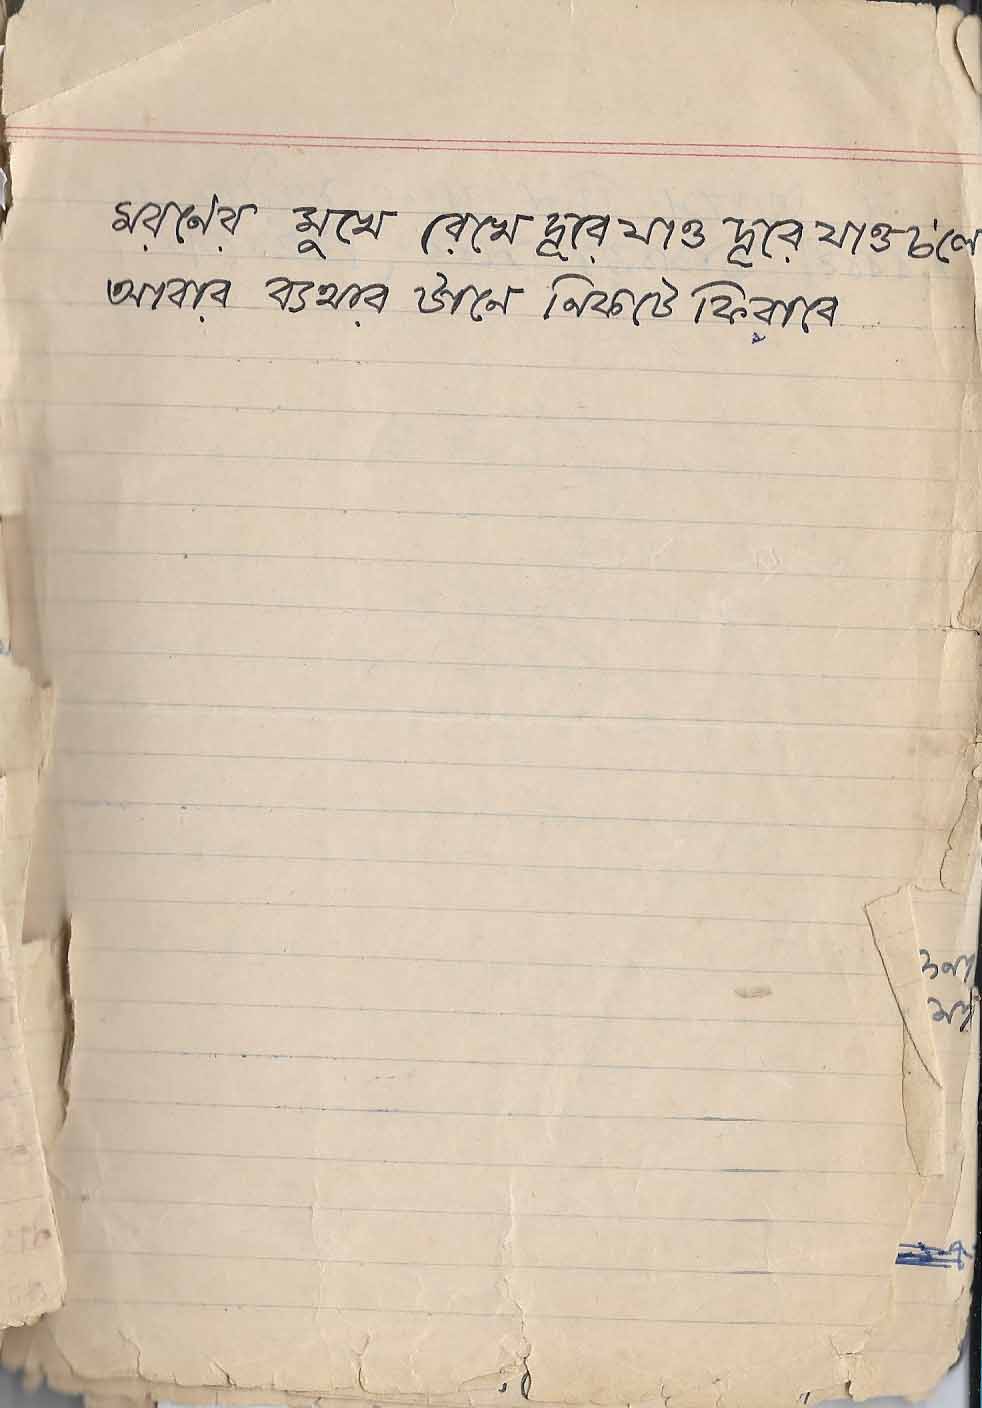 মরণের মুখে রেখে দূরে যাও দূরে যাও চলে
আবার ব্যথার টানে নিকটে ফিরাবে